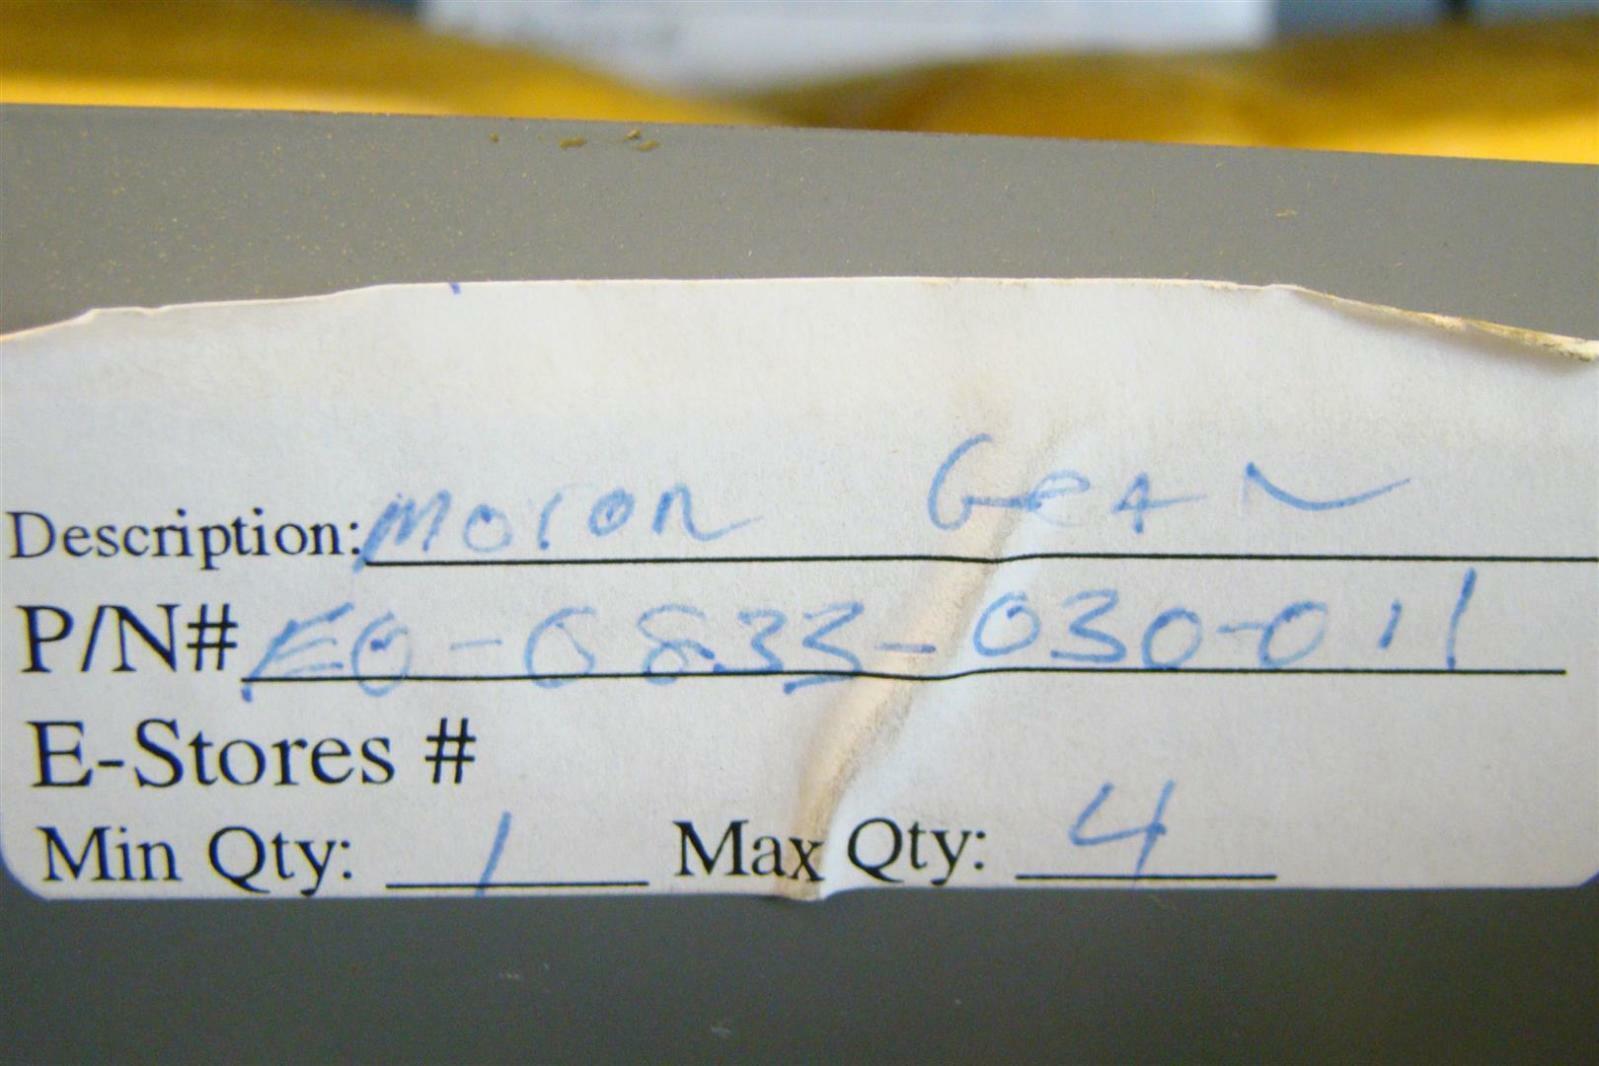 Description: MOTOR GEAR
P/N# EO-6833-030-011
E-Stores #
Min Qty: 1 Max Qty: 4